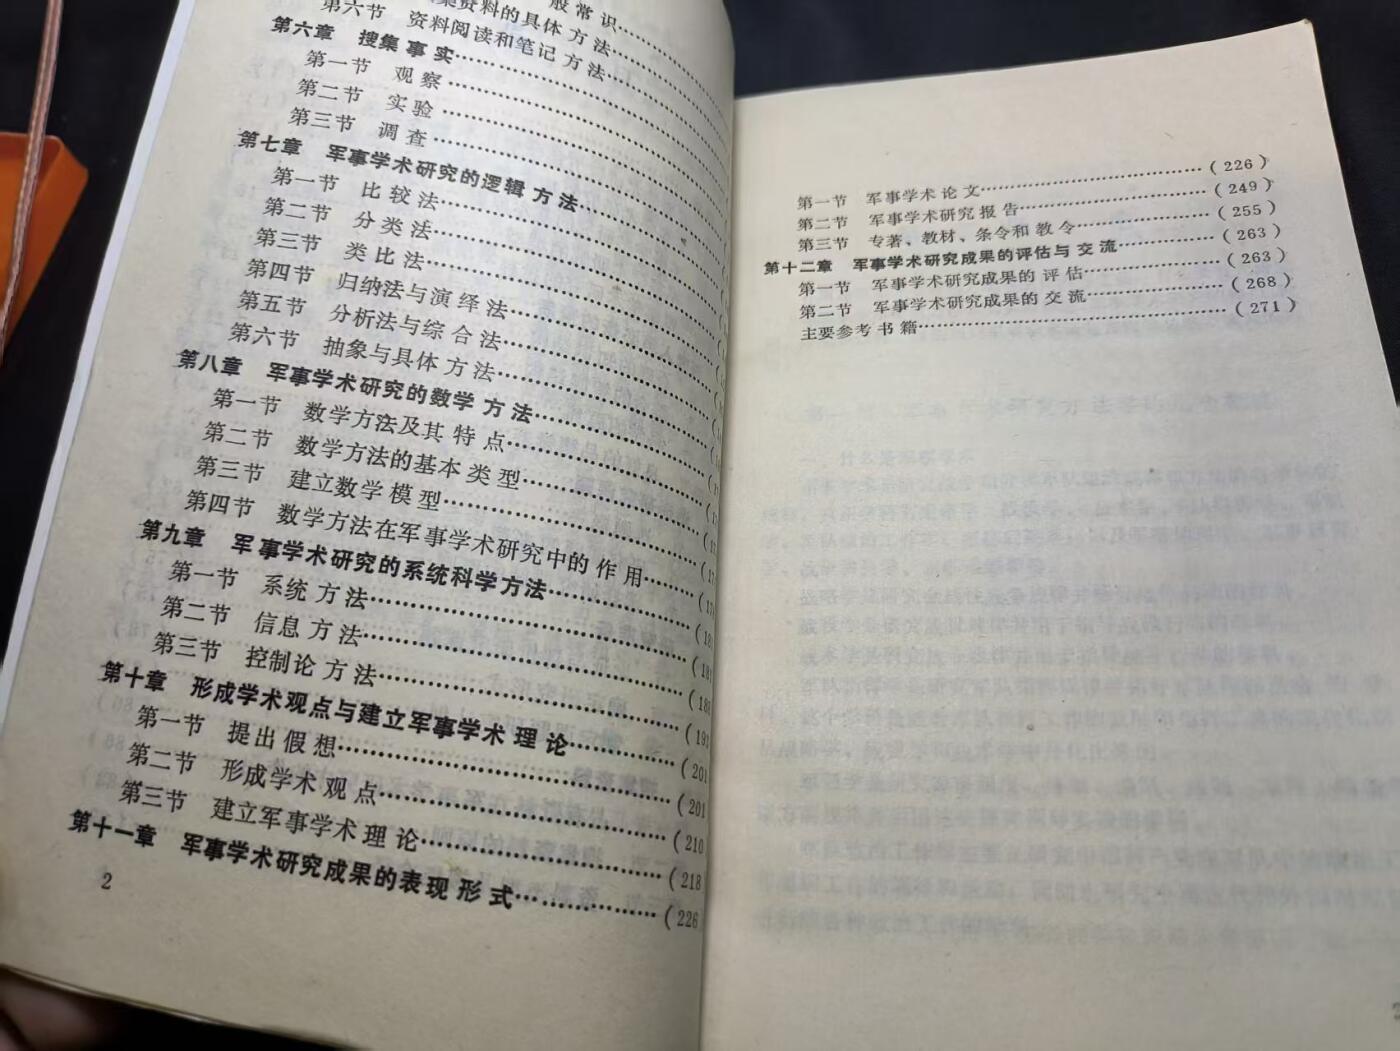 般常识
集资料的具体方法
第六节 资料阅读和笔记方法
第六章 搜集事实
第一节 观察
第二节 实验
第三节 调查
第七章 军事学术研究的逻辑方法
第一节 比较法
第二节 分类法
第三节 类比法
第四节 归纳法与演绎法
第五节 分析法与综合法
第六节 抽象与具体方法
第八章 军事学术研究的数学方法
第一节 数学方法及其特点
第二节 数学方法的基本类型
第三节 建立数学模型
第四节 数学方法在军事学术研究中的作用
第九章 军事学术研究的系统科学方法
第一节 系统方法
第二节 信息方法
第三节 控制论方法
第十章 形成学术观点与建立军事学术理论……(201
第一节 提出假想……(201
第二节 形成学术观点……(210
第三节 建立军事学术理论……(218
第十一章 军事学术研究成果的表现形式……(226
2
第一节 军事学术论文……(226)
第二节 军事学术研究报告……(249)
第三节 专著、教材、条令和教令……(255)
第十二章 军事学术研究成果的评估与交流……(263)
第一节 军事学术研究成果的评估……(263)
第二节 军事学术研究成果的交流……(268)
主要参考书籍……(271)